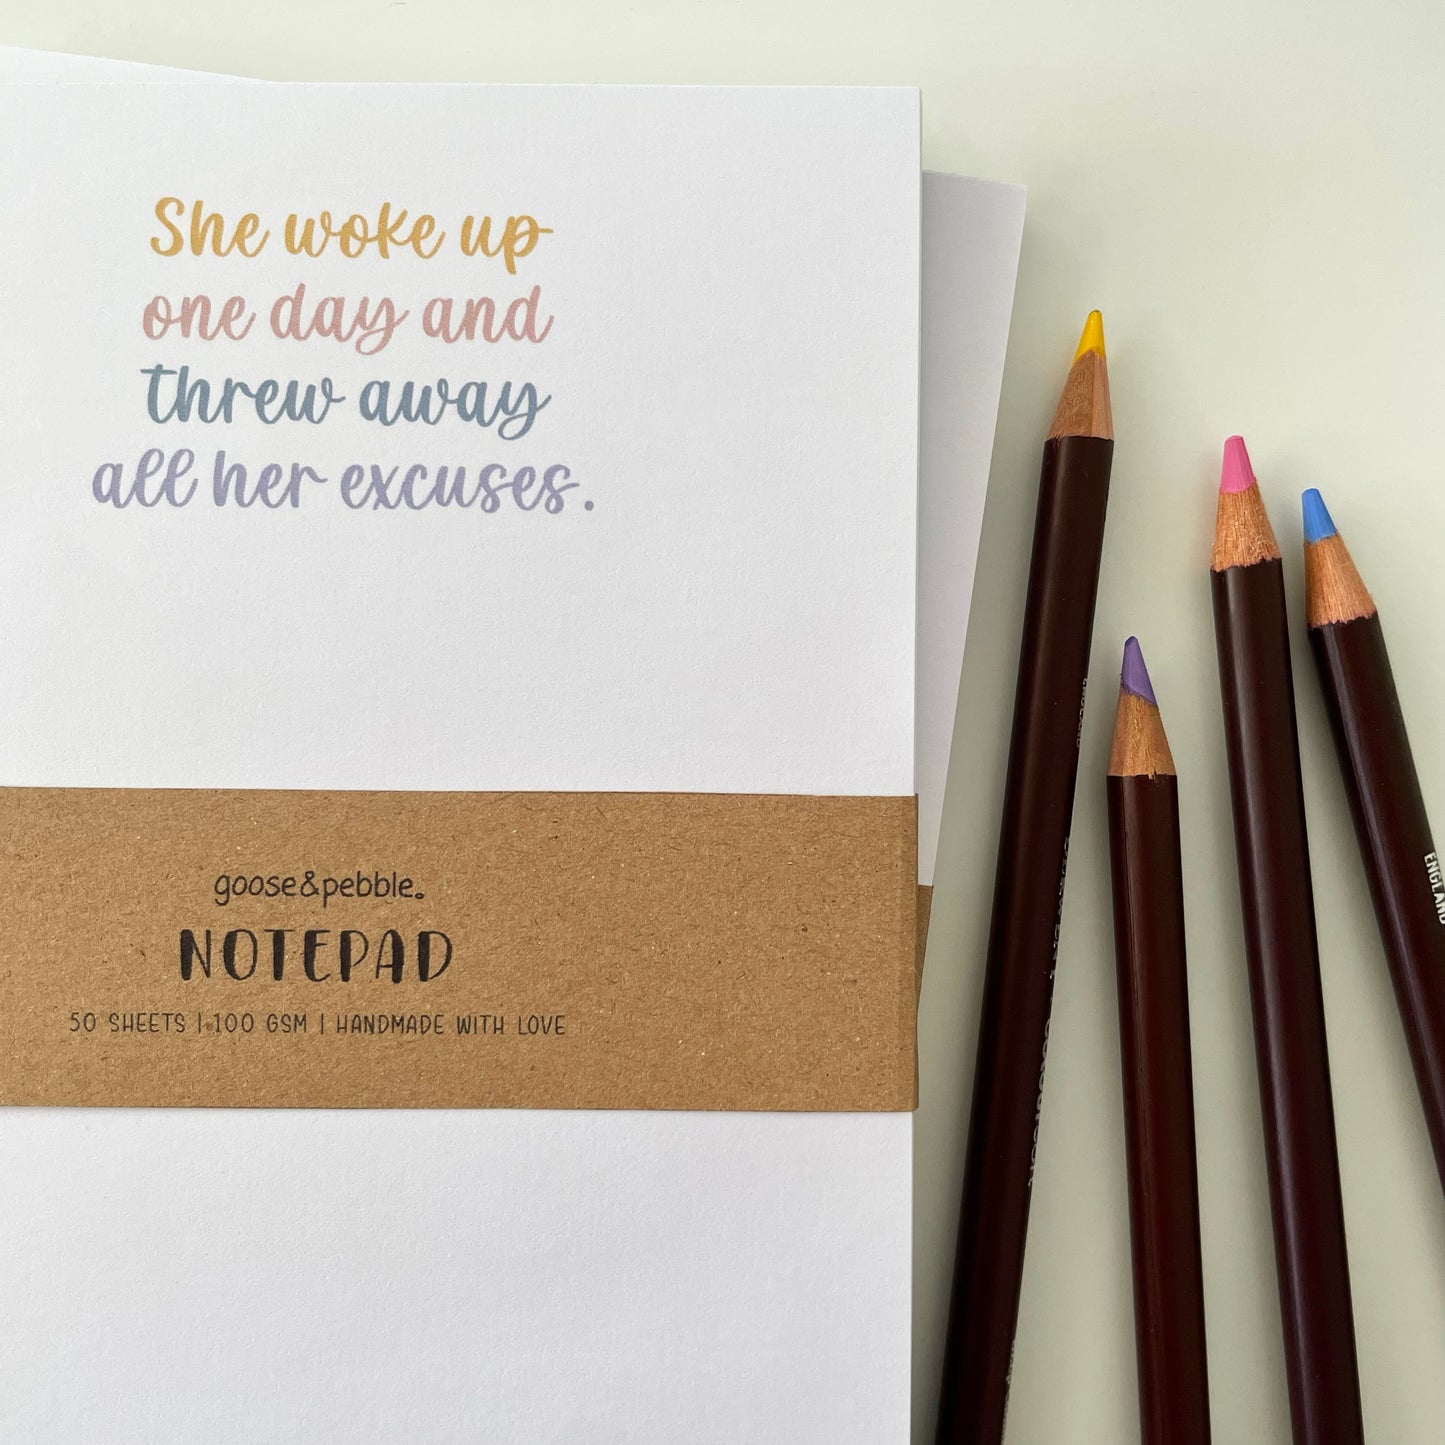 She woke up
one day and
threw away
all her excuses.
goose&pebble.
NOTEPAD
50 SHEETS | 100 GSM | HANDMADE WITH LOVE
ENGLAND